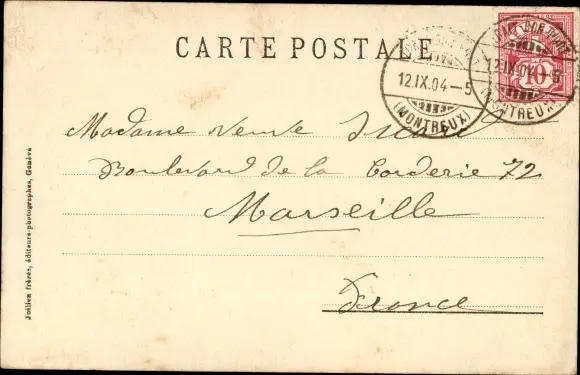 CARTE POSTALE
12.IX.04-5
(MONTREUX)
12.IX.04-5
(MONTREUX)
10
Madame Veuve
Boulevard de la Corderie 72
Marseille
France
Jullien frères, éditeurs-photographes, Genève